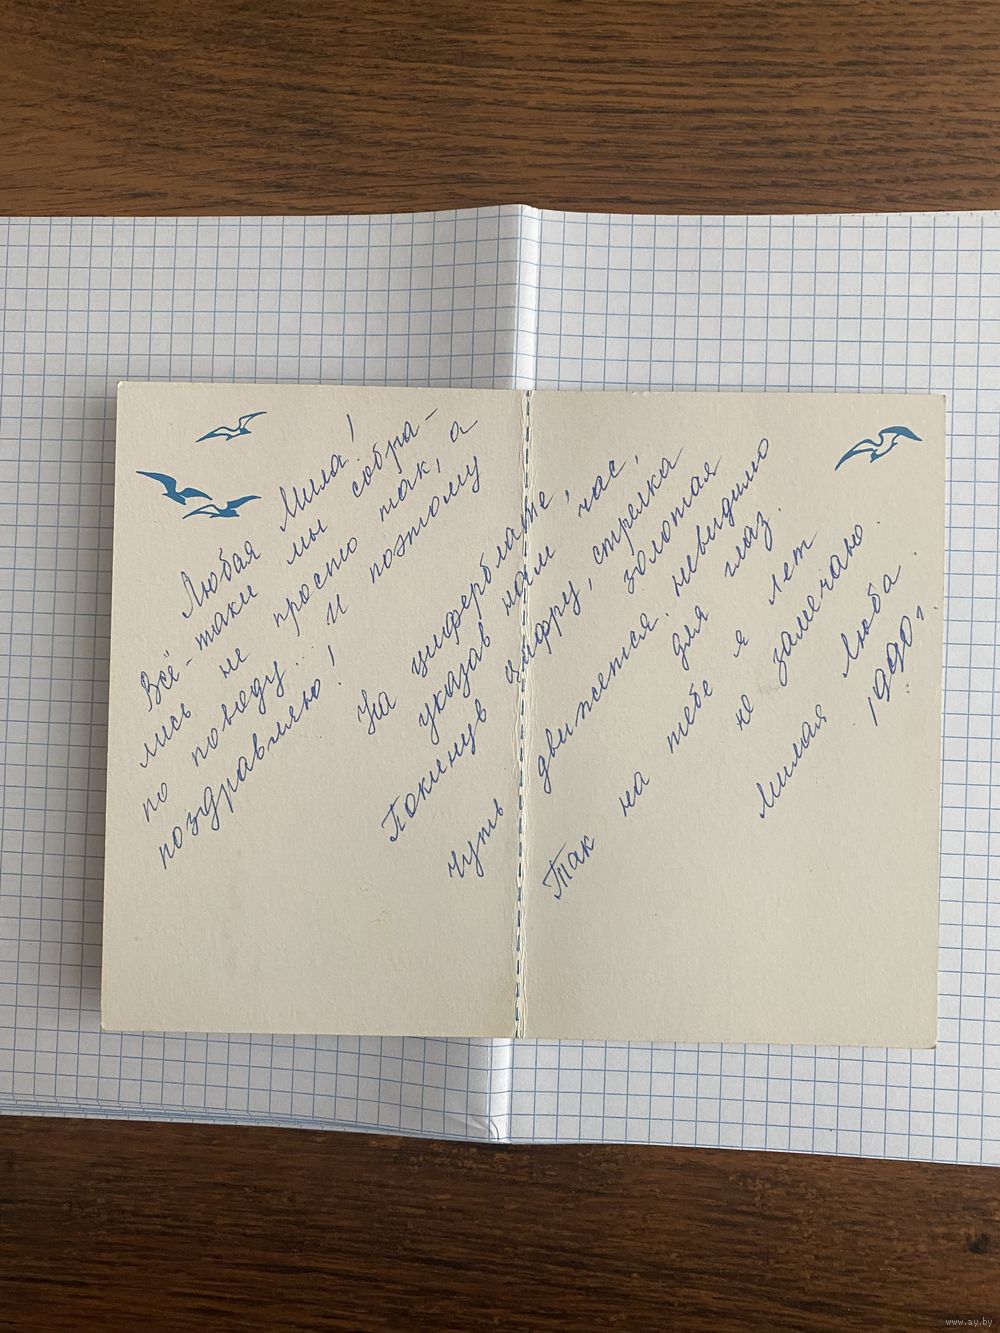 Любая Мила!
Всё-таки мы собра-
лись не просто так, а
по поводу... и поэтому
поздравляю!
На циферблате,
указав нам час,
Покинув цифру, стрелка
золотая
чуть движется невидимо
для глаз.
Так на тебе я лет
не замечаю.
Милая Люба.
1990г.
www.ay.by